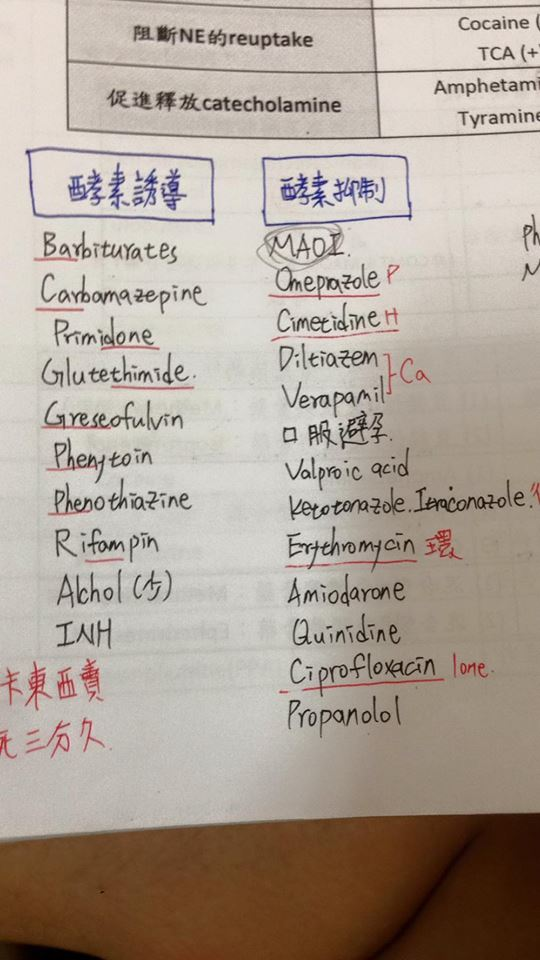 阻斷NE的reuptake
Cocaine (
TCA (+
促進釋放catecholamine
Amphetami
Tyramine
酵素誘導
Barbiturates
Carbamazepine
Primidone
Glutethimide.
Greseofulvin
Phenytoin
Phenothiazine
Rifampin
Alchol (少)
INH
卡東西賣
死三分久
酵素抑制
MAOI.
Omeprazole P
Cimetidine H
Diltiazem
Verapamil
Ca
口服避孕.
Valproic acid
Ketotonazole. Itraconazole.
Erythromycin 環
Amiodarone
Quinidine
Ciprofloxacin lone.
Propanolol
Ph